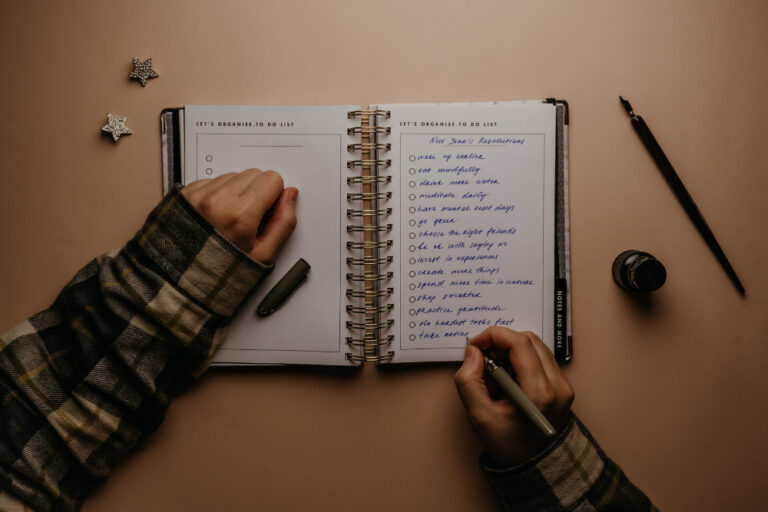 LET'S ORGANISE.TO DO LIST
LET'S ORGANISE.TO DO LIST
New Year's Resolutions
wake up earlier
eat mindfully
drink more water
meditate daily
have mental reset days
go green
choose the right friends
be ok with saying no
invest in experiences
create more things
spend more time in nature
shop smarter
practice gratitude
do hardest tasks first
take notes
NOTES AND MORE